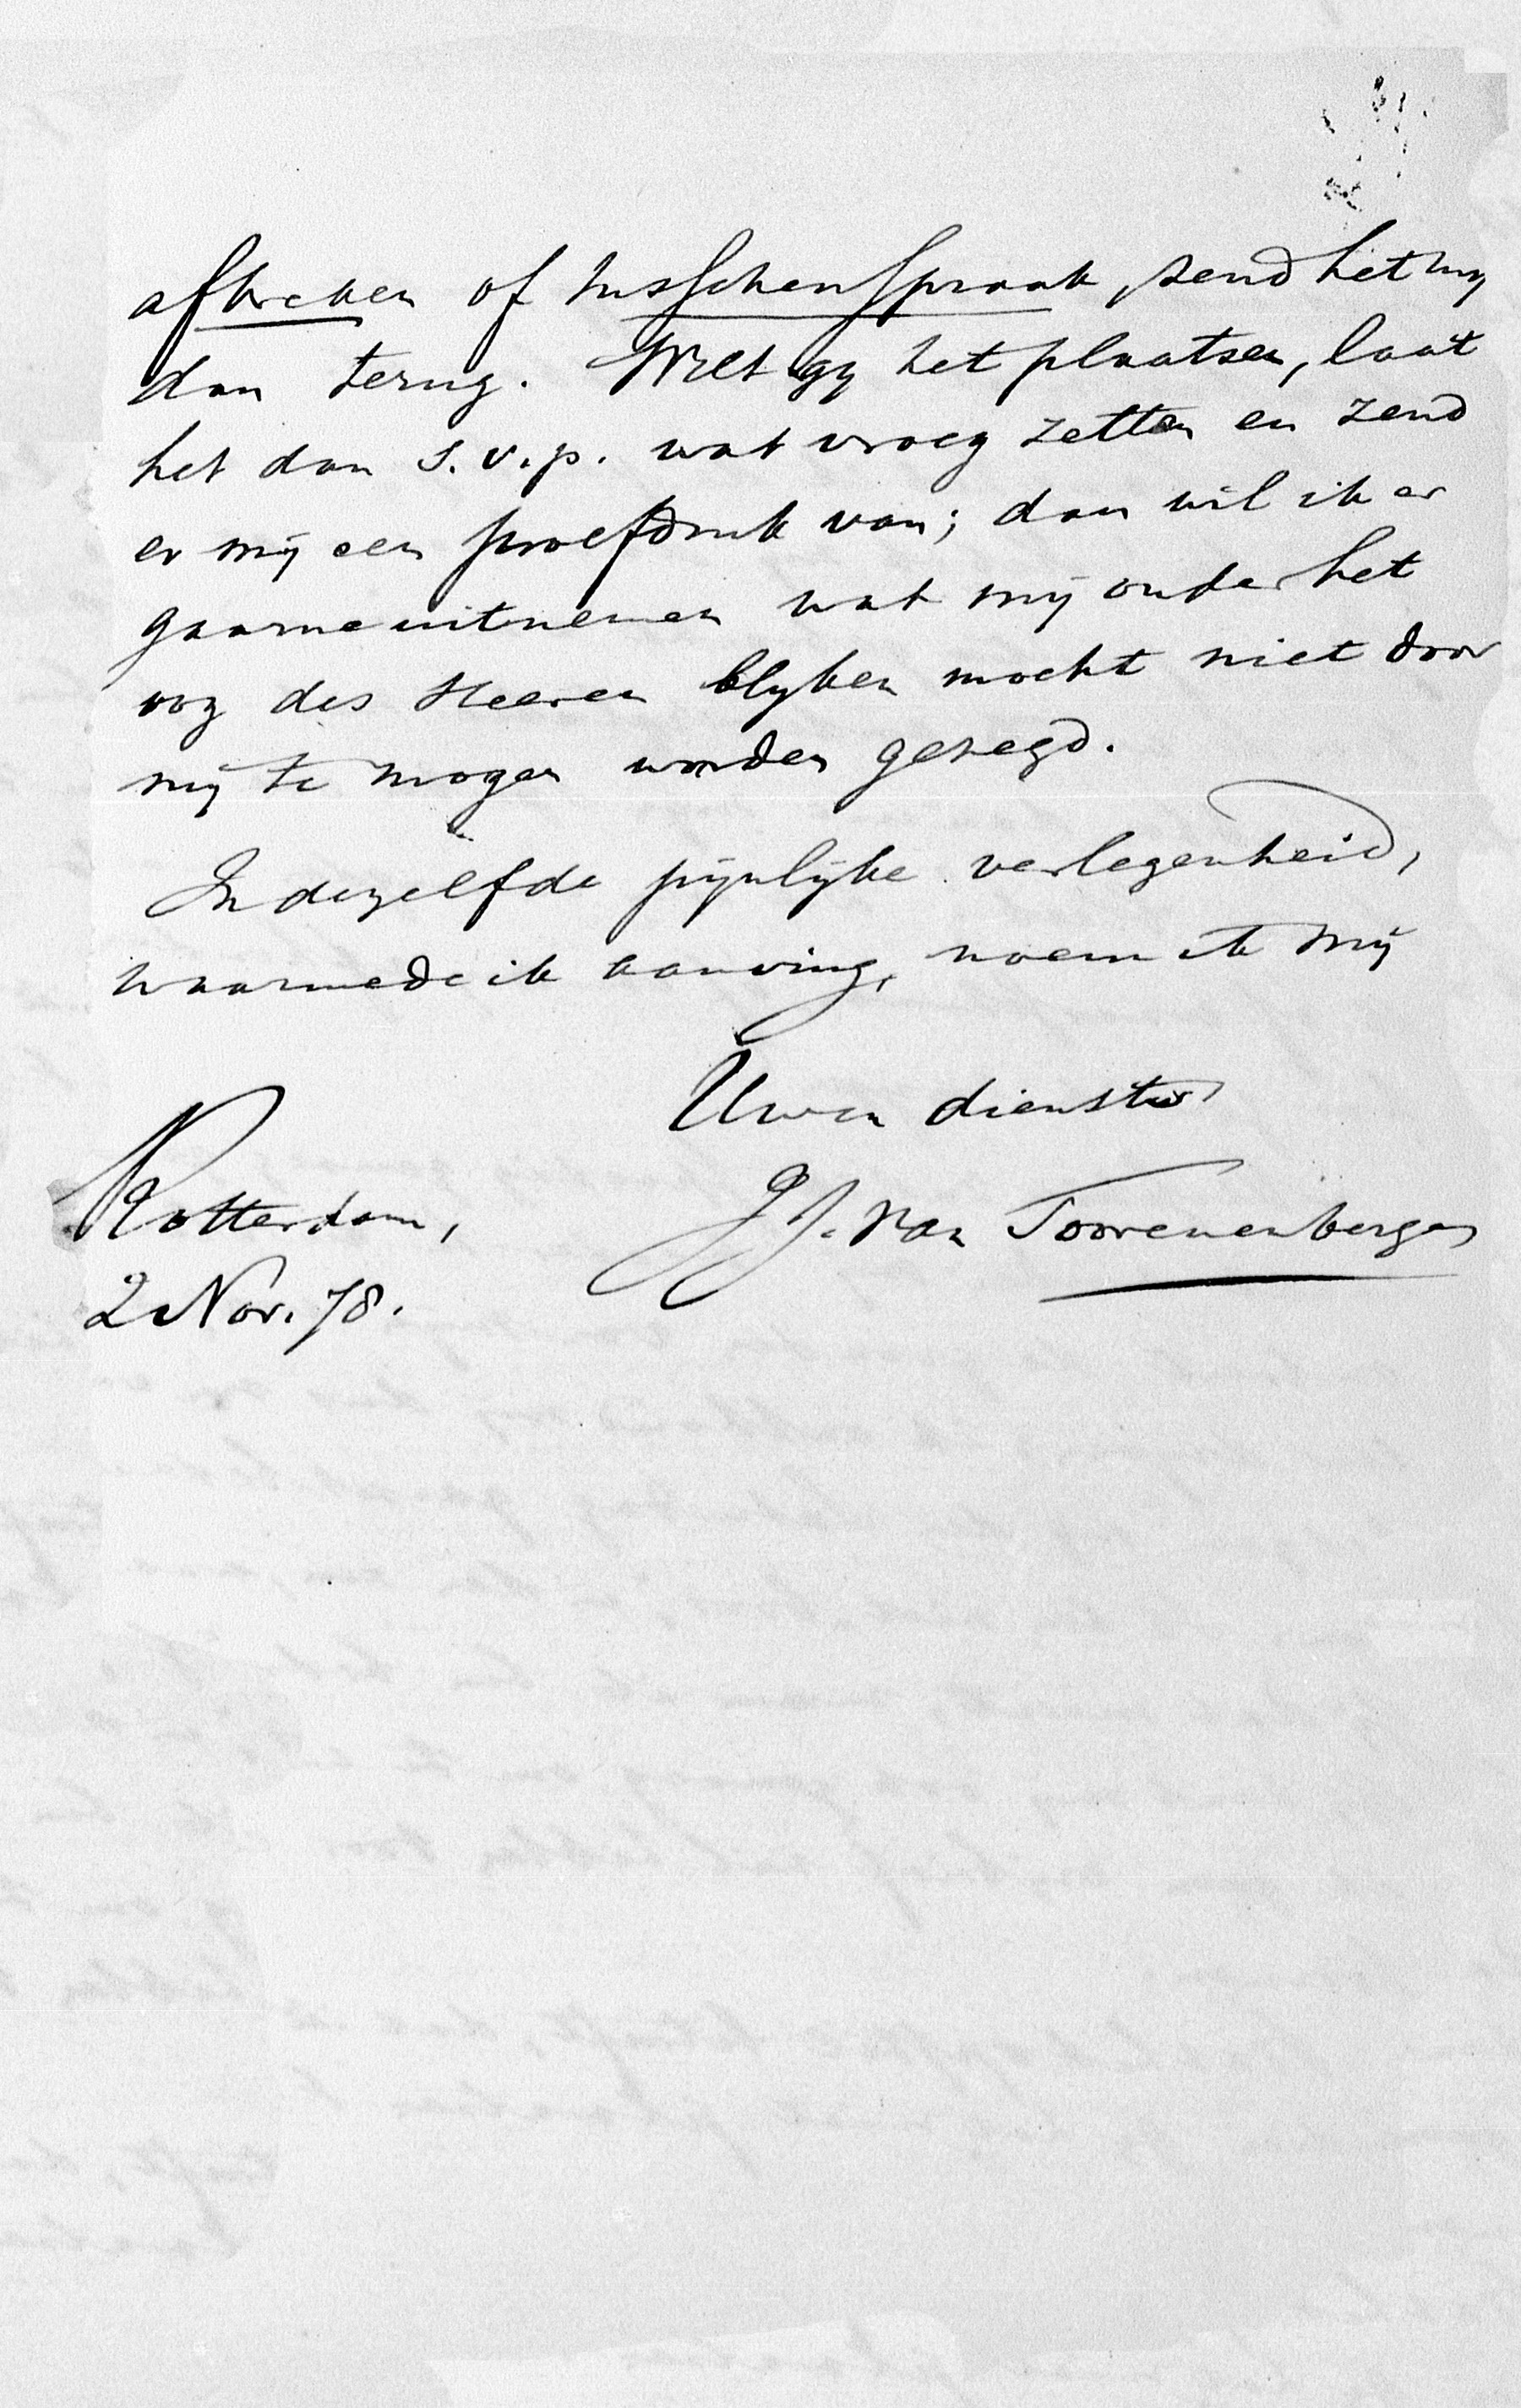 afbreken of tusschenspraak, zend het mij
dan terug. Wilt gij het plaatsen, laat
het dan s.v.p. wat vroeg zetten en zend
er mij een proefdruk van; dan wil ik er
gaarne uitnemen wat mij onder het
oog des Heeren blyken mocht niet door
mij te mogen worden gezegd.
In dezelfde pijnlijke verlegenheid,
waarmede ik aanving, noem ik mij
Uwen dienstw
Rotterdam,
J.J. van Toorenenbergen
2 Nov. 78.